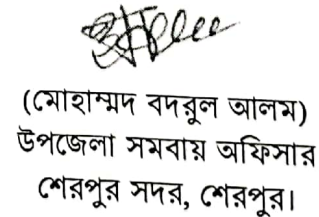 (মোহাম্মদ বদরুল আলম)
উপজেলা সমবায় অফিসার
শেরপুর সদর, শেরপুর।